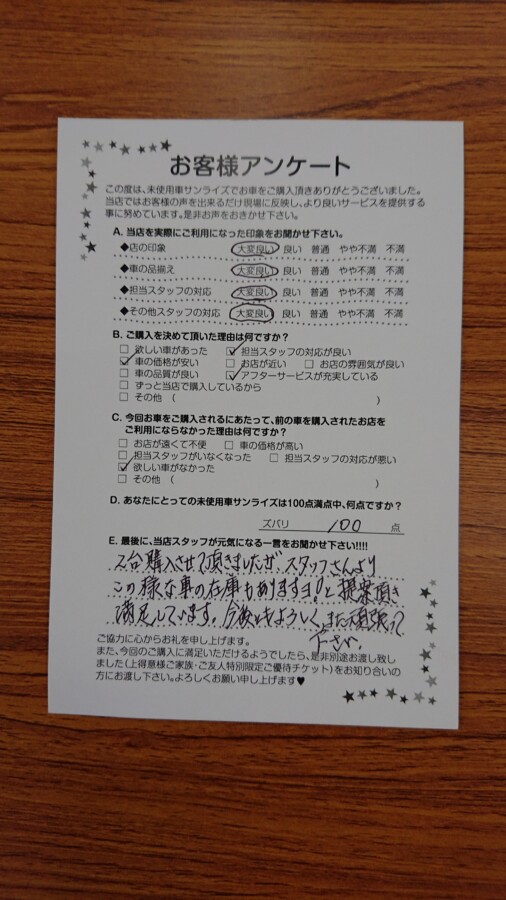 お客様アンケート
この度は、未使用車サンライズでお車をご購入頂きありがとうございました。
当店ではお客様の声を出来るだけ現場に反映し、より良いサービスを提供する
事に努めています。是非お声をおきかせ下さい。
A. 当店を実際にご利用になった印象をお聞かせ下さい。
◆店の印象 大変良い 良い 普通 やや不満 不満
◆車の品揃え 大変良い 良い 普通 やや不満 不満
◆担当スタッフの対応 大変良い 良い 普通 やや不満 不満
◆その他スタッフの対応 大変良い 良い 普通 やや不満 不満
B. ご購入を決めて頂いた理由は何ですか?
□ 欲しい車があった ☑ 担当スタッフの対応が良い
☑ 車の価格が安い □ お店が近い □ お店の雰囲気が良い
□ 車の品質が良い ☑ アフターサービスが充実している
□ ずっと当店で購入しているから
□ その他 ( )
C. 今回お車をご購入されるにあたって、前の車を購入されたお店を
ご利用にならなかった理由は何ですか?
□ お店が遠くて不便 □ 車の価格が高い
□ 担当スタッフがいなくなった □ 担当スタッフの対応が悪い
☑ 欲しい車がなかった
□ その他 ( )
D. あなたにとっての未使用車サンライズは100点満点中、何点ですか?
ズバリ 100 点
E. 最後に、当店スタッフが元気になる一言をお聞かせ下さい!!!!
2台購入させて頂きましたが スタッフさんより
この様な車の在庫もありますヨ!と提案頂き
満足しています。今後ともよろしく、また頑張って
下さい。
ご協力に心からお礼を申し上げます。
また、今回のご購入に満足いただけるようでしたら、是非別途お渡し致し
ました(上得意様ご家族・ご友人特別限定ご優待チケット)をお知り合いの
方にお渡し下さい。よろしくお願い申し上げます♥